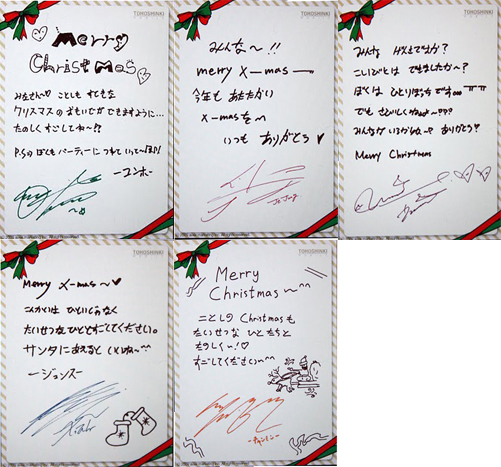 TOHOSHINKI
Merry
Christmas
みなさん〜♡ ことしも すてきな
クリスマスの おもいでが できますように...
たのしく すごしてね〜!?
P.Sの ぼくも パーティーに つれていって〜ほし!
ーユンホー
TOHOSHINKI
みんな〜!!
merry X-mas ー
今年も あたたかい
X-masを〜
いつも ありがとう♥
JeJung
TOHOSHINKI
みんな げんきですか?
こいびとは できましたか〜?
ぼくは ひとりぼっちですㅠㅠ
でも さびしくないよ〜???
みんなが いるからね〜 ありがとう?
Merry Christmas
TOHOSHINKI
Merry X-mas〜♥
こんかいは ひとりじゃなく
たいせつな ひとと すごしてください。
サンタに あえると いいね〜^^
ージュンスー
Xiah
TOHOSHINKI
Merry
Christmas〜^^
ことしの Christmasも
たいせつな ひとたちと
たのしく〜!♡
すごしてください〜^^
ーチャンミンー